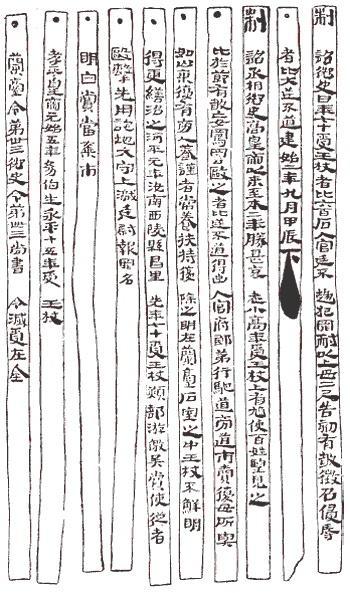 制 詔御史曰年七十受王杖者比六百石入官廷不趨犯罪耐以上毋二尺告劾有敢徵召侵辱
者比大逆不道建始二年九月甲辰下
制 詔丞相御史高皇帝以來至本二年勝甚哀老小高年受王杖上有鳩使百姓望見之
比於節有敢妄罵詈毆之者比逆不道得出入官府郎第行馳道旁道市賣復毋所與
如山東復有旁人養謹者常養扶持復除之明在蘭臺石室之中王杖不鮮明
得更繕治之河平元年汝南西陵縣昌里先年七十受王杖 部游徼吳賞使從者
毆擊先用詫地大守上讞廷尉報罪名
明白賞當棄市
孝平皇帝元始五年幼伯生永平十五年受王杖
蘭臺令第卅三御史令第卌三尚書令滅受在金